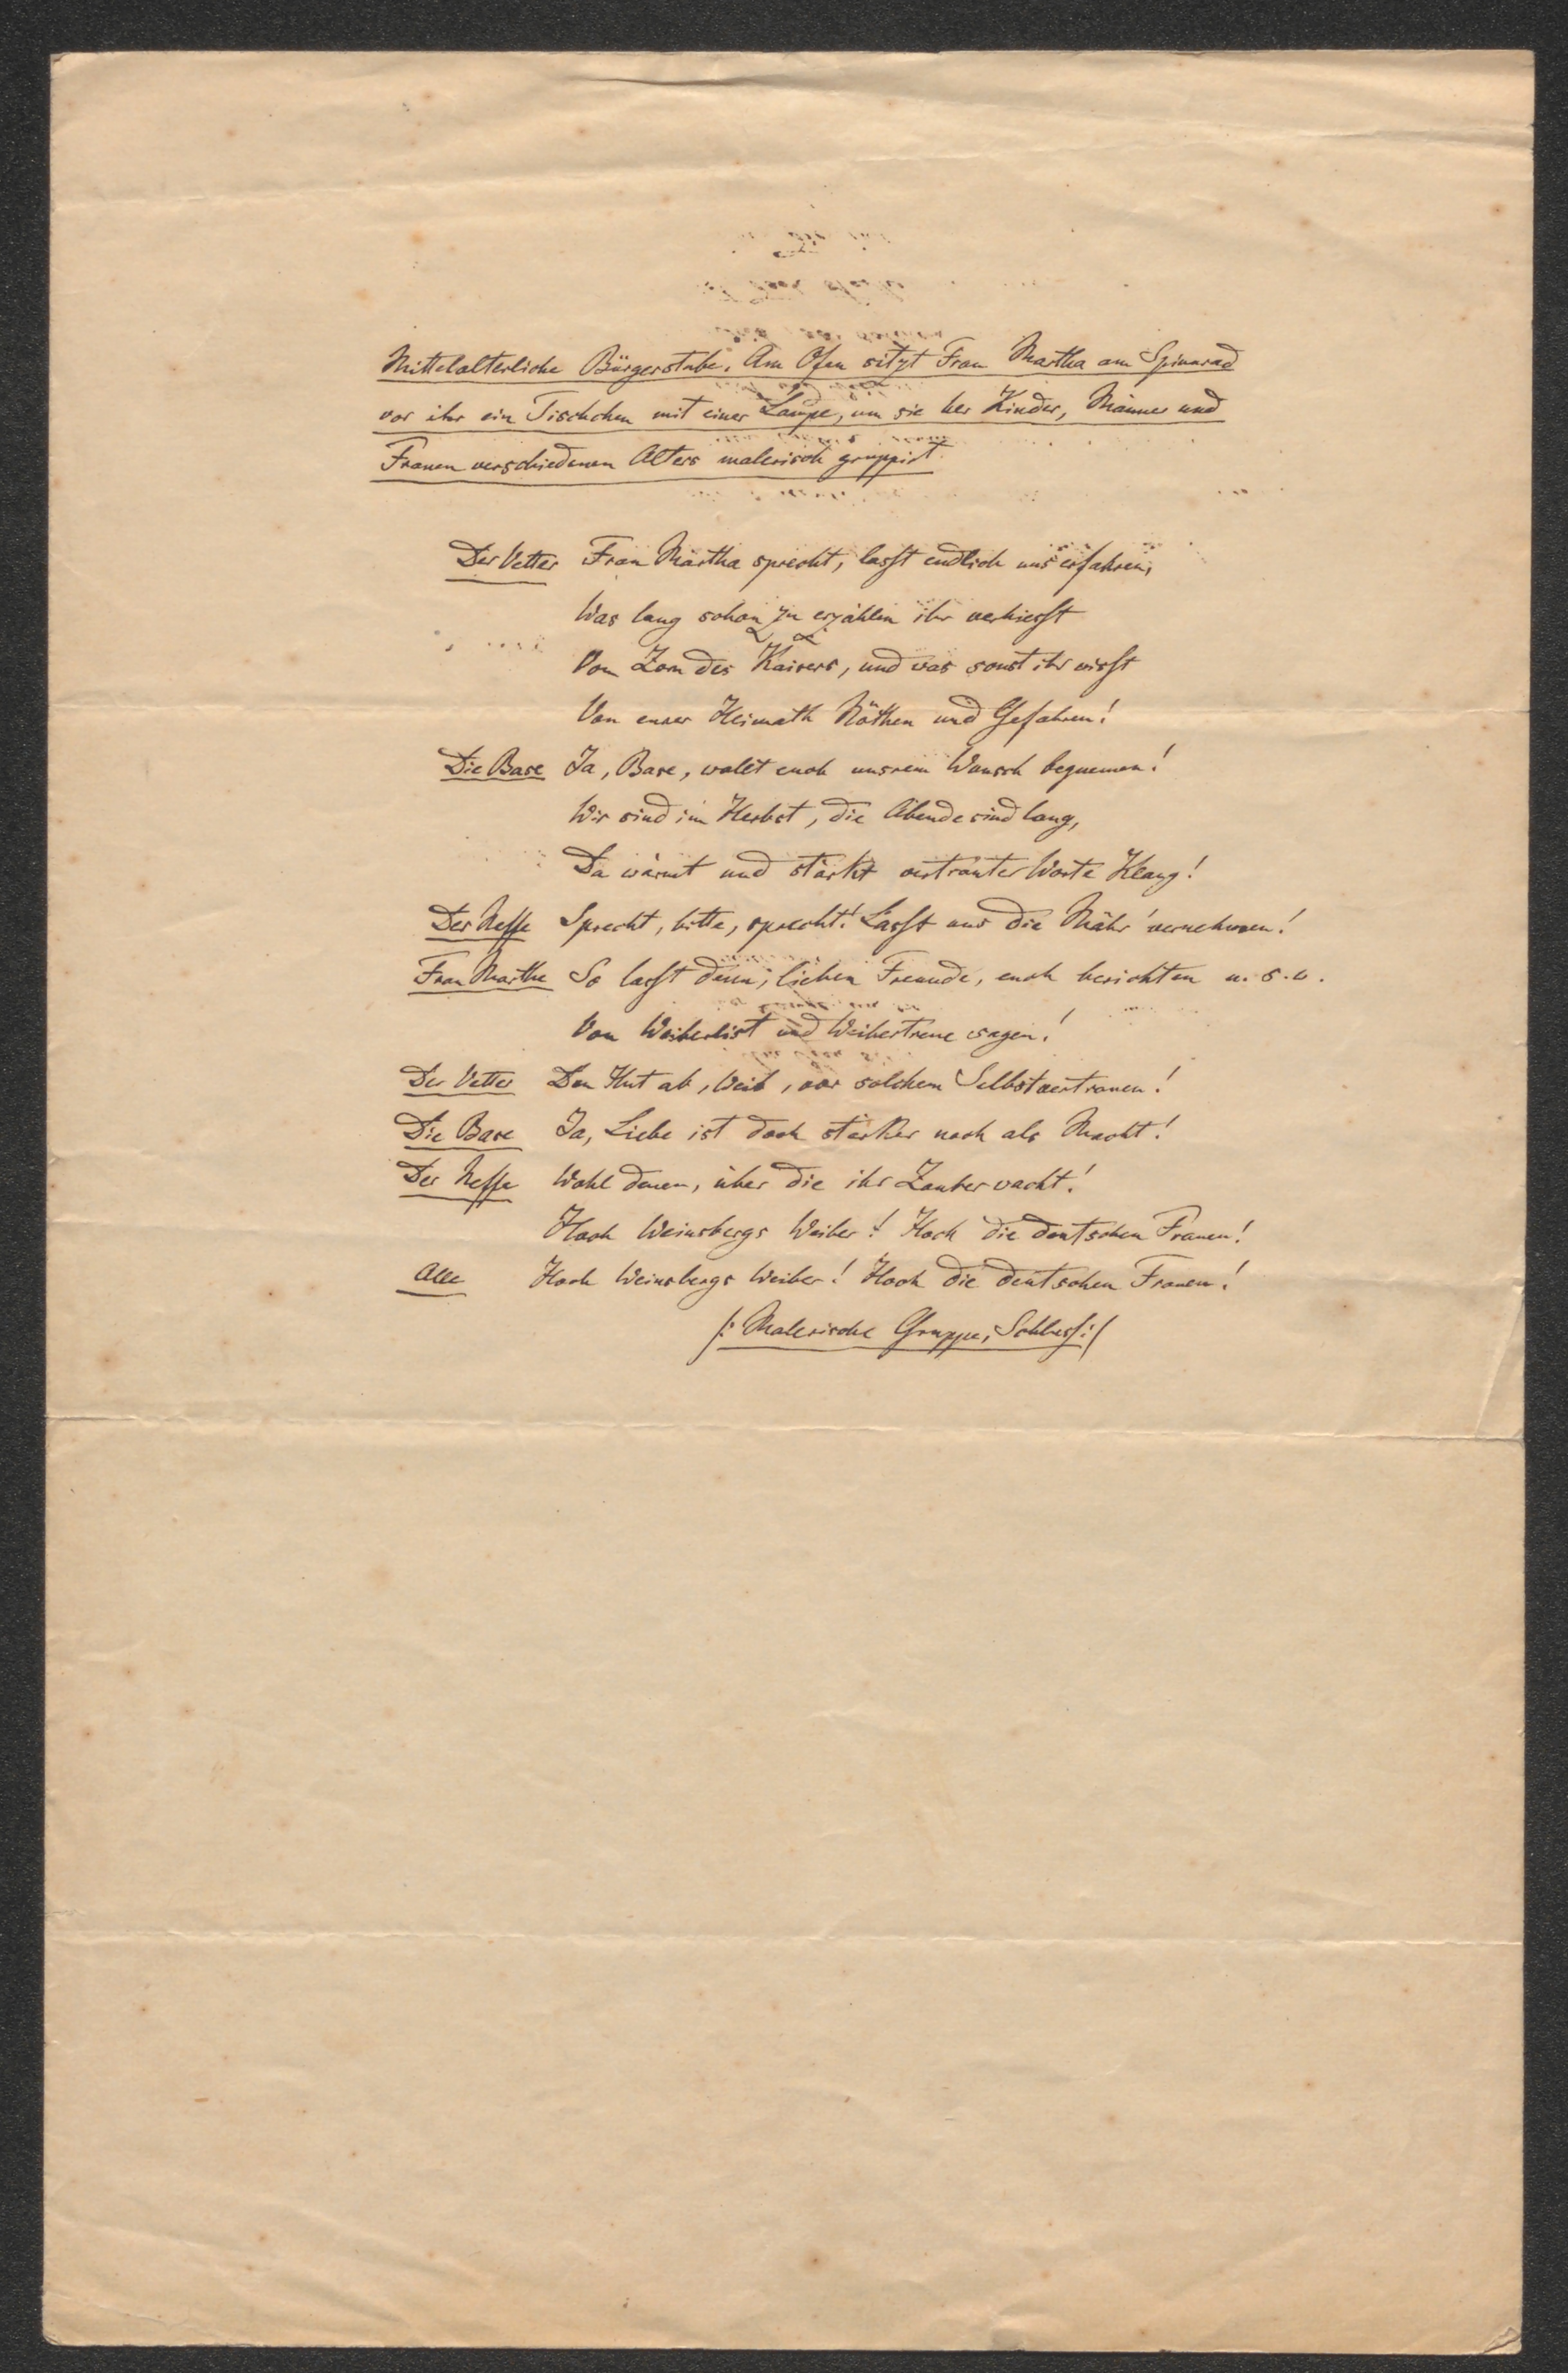 Mittelalterliche Bürgerstube. Am Ofen sitzt Frau Martha am Spinnrad
vor ihr ein Tischchen mit einer Lampe, um sie her Kinder, Männer und
Frauen verschiedenen Alters malerisch gruppirt.
Der Vetter Frau Martha sprecht, lasst endlich uns erfahren,
Was lang schon zu erzählen ihr verhiesst
Vom Zorn des Kaisers, und was sonst ihr wisst
Von eurer Heimath Nöthen und Gefahren!
Die Base Ja, Base, wollt euch unsrem Wunsch bequemen!
Wir sind im Herbst, die Abende sind lang,
Da wärmt und stärkt vertrauter Worte Klang!
Der Neffe Sprecht, bitte, sprecht! Lasst uns die Mähr' vernehmen!
Frau Martha So lasst denn, lieben Freunde, euch berichten u. s. w.
Von Weiberlist und Weibertreue sagen!
Der Vetter Den Hut ab, Weib, vor solchem Selbstvertrauen!
Die Base Ja, Liebe ist doch stärker noch als Macht!
Der Neffe Wohl denen, über die ihr Zauber wacht!
Hoch Weinsbergs Weiber! Hoch die deutschen Frauen!
Alle Hoch Weinsbergs Weiber! Hoch die deutschen Frauen!
/: Malerische Gruppe, Schluss :/